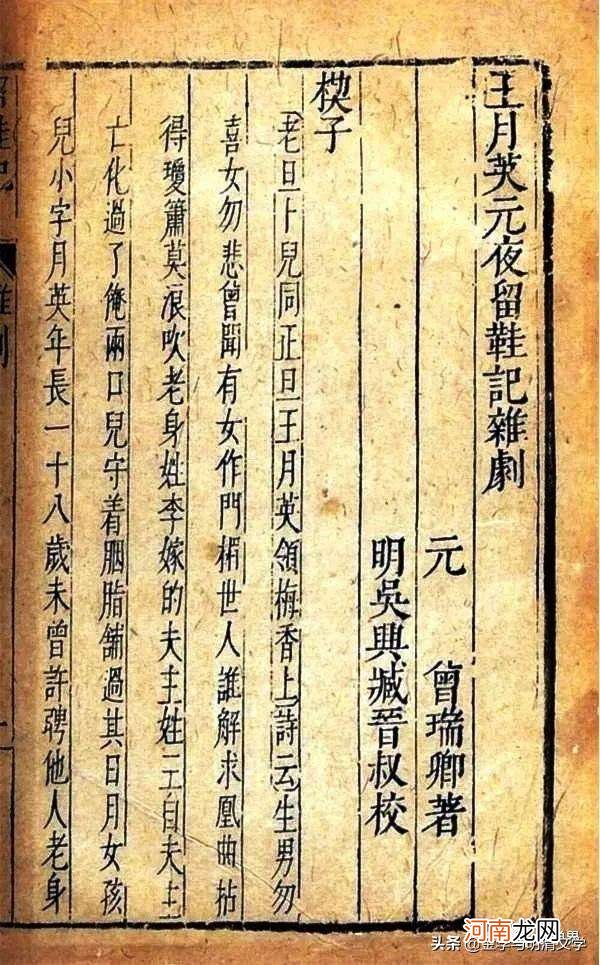 王月英元夜留鞋記雜劇
元 曾瑞卿著
明吳興臧晉叔校
楔子
老旦卜兒同正旦王月英領梅香上詩云生男勿
喜女勿悲曾聞有女作門楣世人誰解求凰曲拈
得瓊簫莫浪吹老身姓李嫁的夫主姓王自夫主
亡化過了俺兩口兒守着胭脂舖過其日月女孩
兒小字月英年長一十八歲未曾許聘他人老身
河南龙网
头条 @金学与明清文学